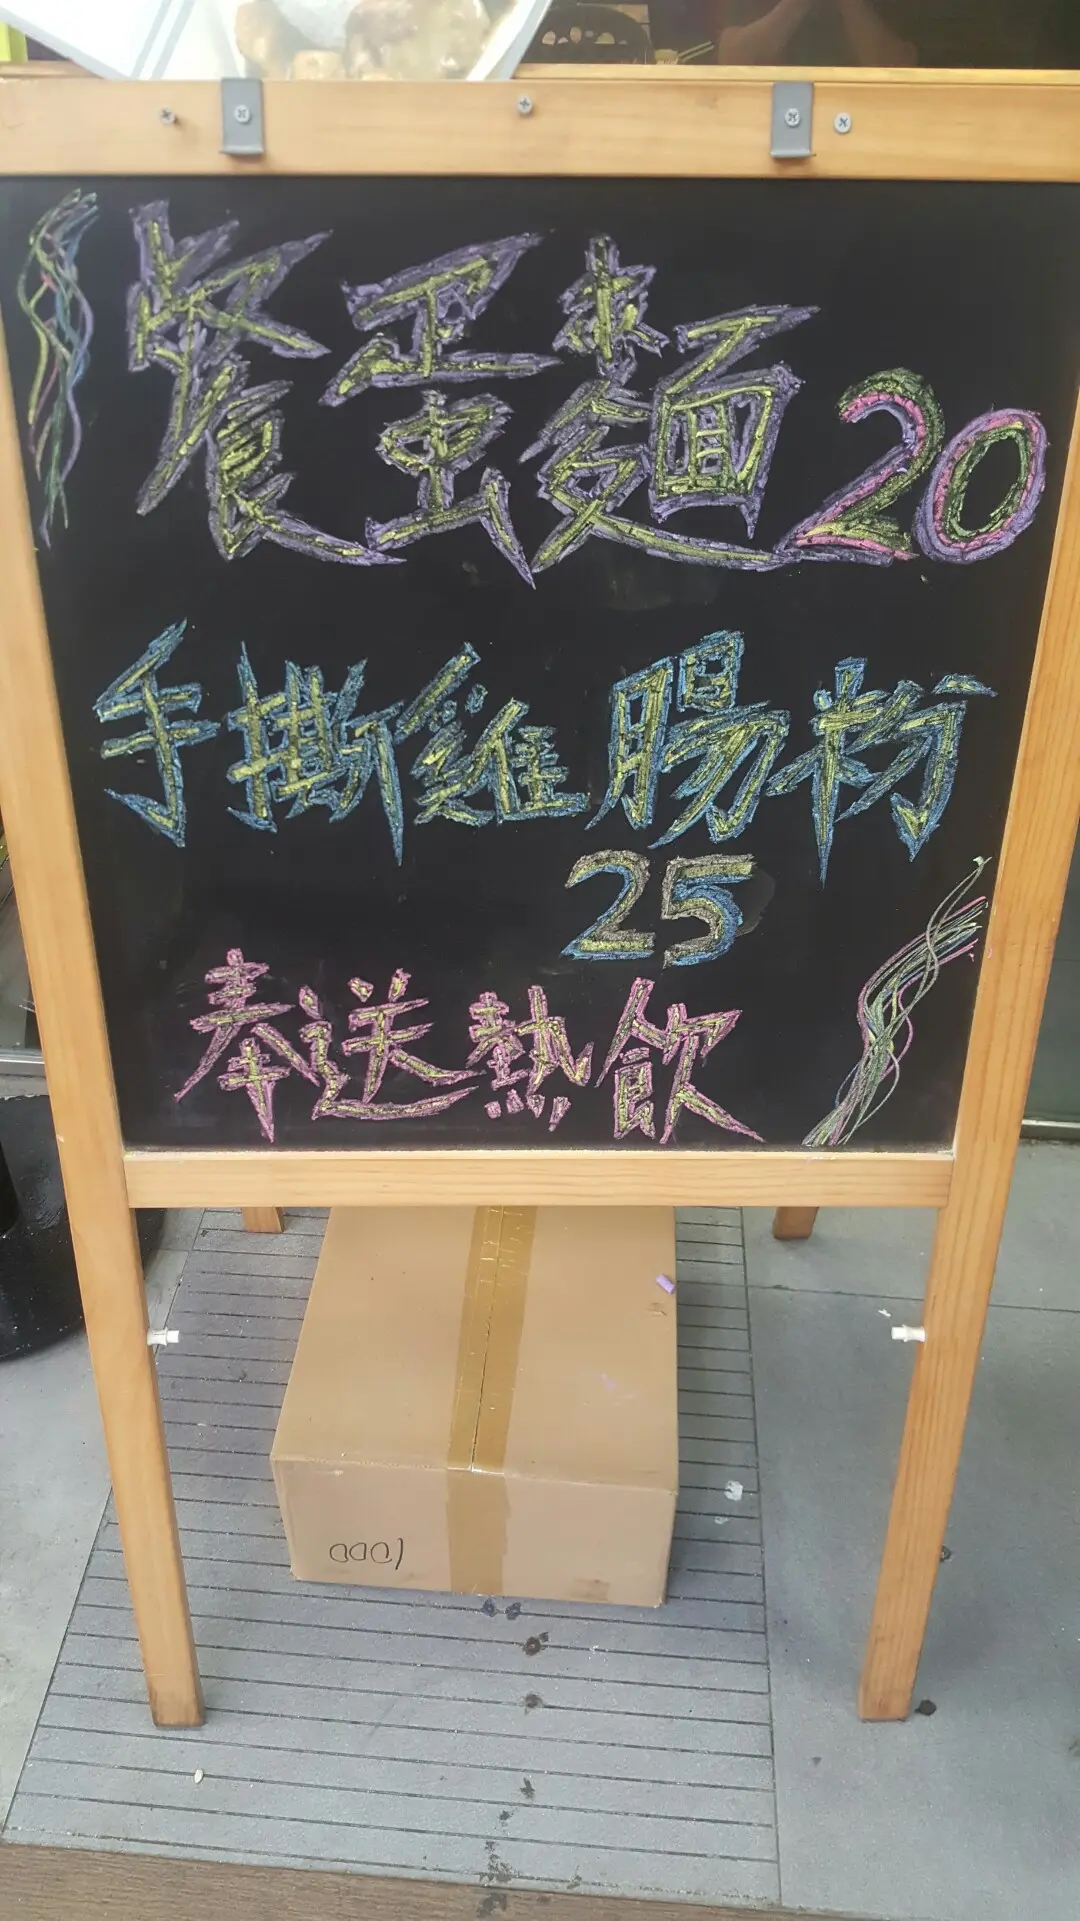 餐蛋麵20
手撕雞腸粉
25
奉送熱飲
0001